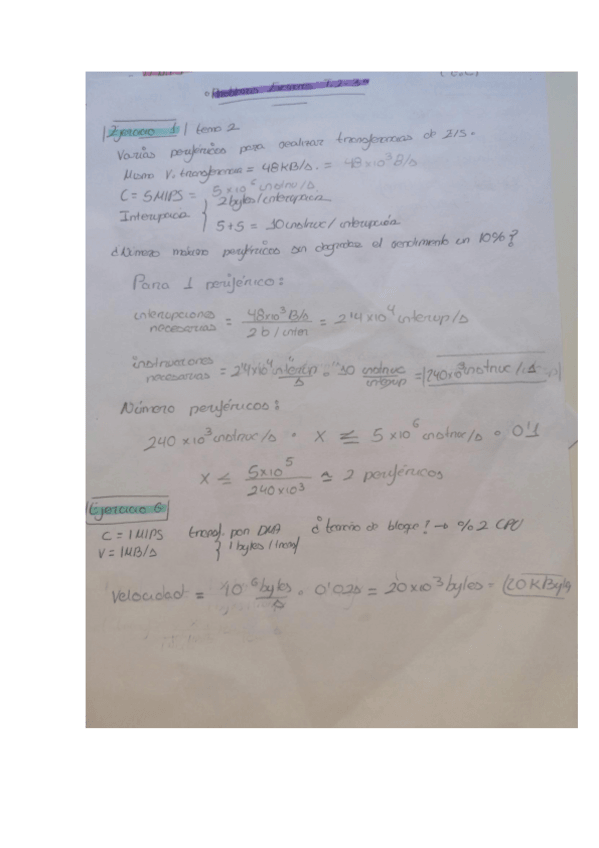 Ejercicio 1 / tema 2
Varios periféricos para realizar transferencias de E/S.
V. transferencia = 48KB/s. = 48x10³B/s
C = 5MIPS = 5x10⁶ instruc/s
Interrupción { 2 bytes/interrupción
5+5 = 10 instruc/interrupción
¿Número máximo periféricos sin degradar el rendimiento un 10%?
Para 1 periférico:
interrupciones necesarias = 48x10³ B/s / 2b/interr = 2'4x10⁴ interrup/s
instrucciones necesarias = 2'4x10⁴ interrup/s · 10 instruc/interrup = 240x10³ instruc/s
Número periféricos:
240 x10³ instruc/s · X ≤ 5x10⁶ instruc/s · 0'1
X ≤ 5x10⁵ / 240x10³ ≈ 2 periféricos
Ejercicio 6
C = 1MIPS transf. por DMA ¿tamaño de bloque? → %2 CPU
V = 1MB/s { 1 bytes/instruc
Velocidad = 10⁶ bytes/s · 0'02s = 20x10³ bytes = 20KBytes